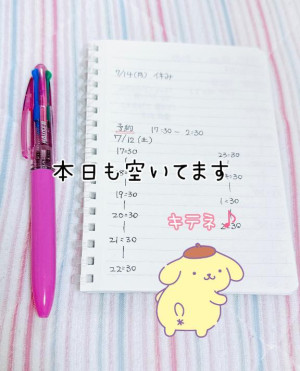 7/14(月) 休み
予約 17:30 - 2:30
7/12(土)
17:30
19:30
20:30
21:30
22:30
本日も空いてます
1:30
キテネ♪